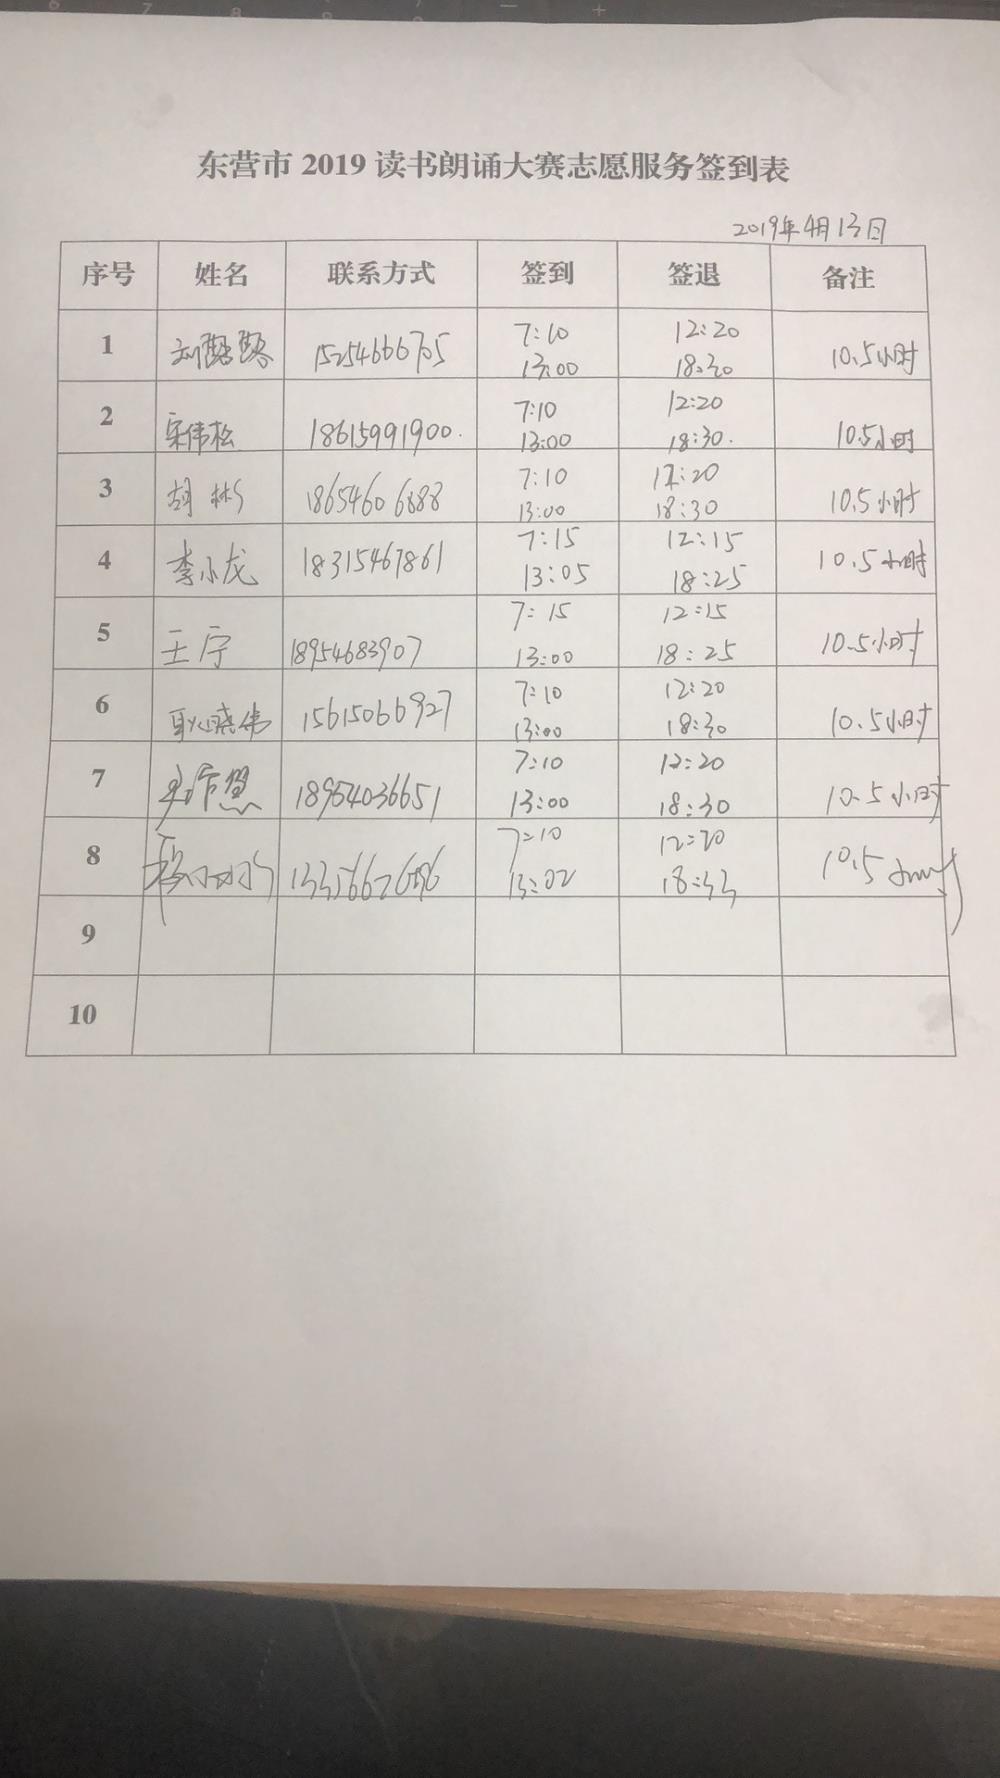 东营市 2019 读书朗诵大赛志愿服务签到表
2019年4月13日
序号 姓名 联系方式 签到 签退 备注
1 刘璐璐 15254666705 7:10 13:00 12:20 18:30 10.5小时
2 宋伟松 18615991900. 7:10 13:00 12:20 18:30. 10.5小时
3 胡彬 18654606888 7:10 13:00 12:20 18:30 10.5小时
4 李小龙 18315467861 7:15 13:05 12:15 18:25 10.5小时
5 王宁 18954683907 7:15 13:00 12:15 18:25 10.5小时
6 耿晓伟 15615066927 7:10 13:00 12:20 18:30 10.5小时
7 18954036651 7:10 13:00 12:20 18:30 10.5小时
8 7:10 13:02 12:20 18:33 10.5小时
9
10